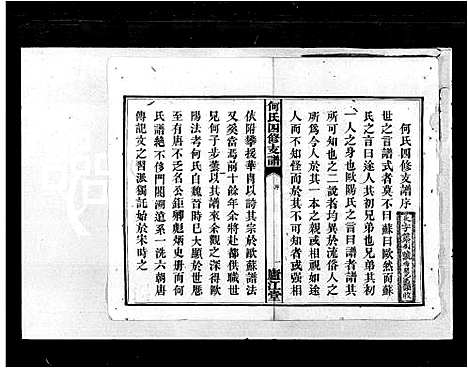 何氏四修支譜序
世之言譜式者莫不曰蘇曰歐然而蘇
氏之言曰途人其初兄弟也兄弟其初
一人之身也歐陽氏之言曰譜者其所
可知也之二說者均異於流俗人之
所為今人於其一本之親或相視如途
人而不知怪而於其不可知者或強相
何氏四修支譜
序
廬江堂
依附攀援華冑以誇其宗於歐蘇譜法
又奚當焉前十餘年余將赴都供職世
兄何子步瀛以其譜來余觀之深得歐
陽法考何氏自魏晉時已大顯於世厯
至有唐不乏名公鉅卿彪炳史冊而何
氏譜絶不侈門閥溯遠系一洗六朝唐
傳記文之習派獨託始於宋時之